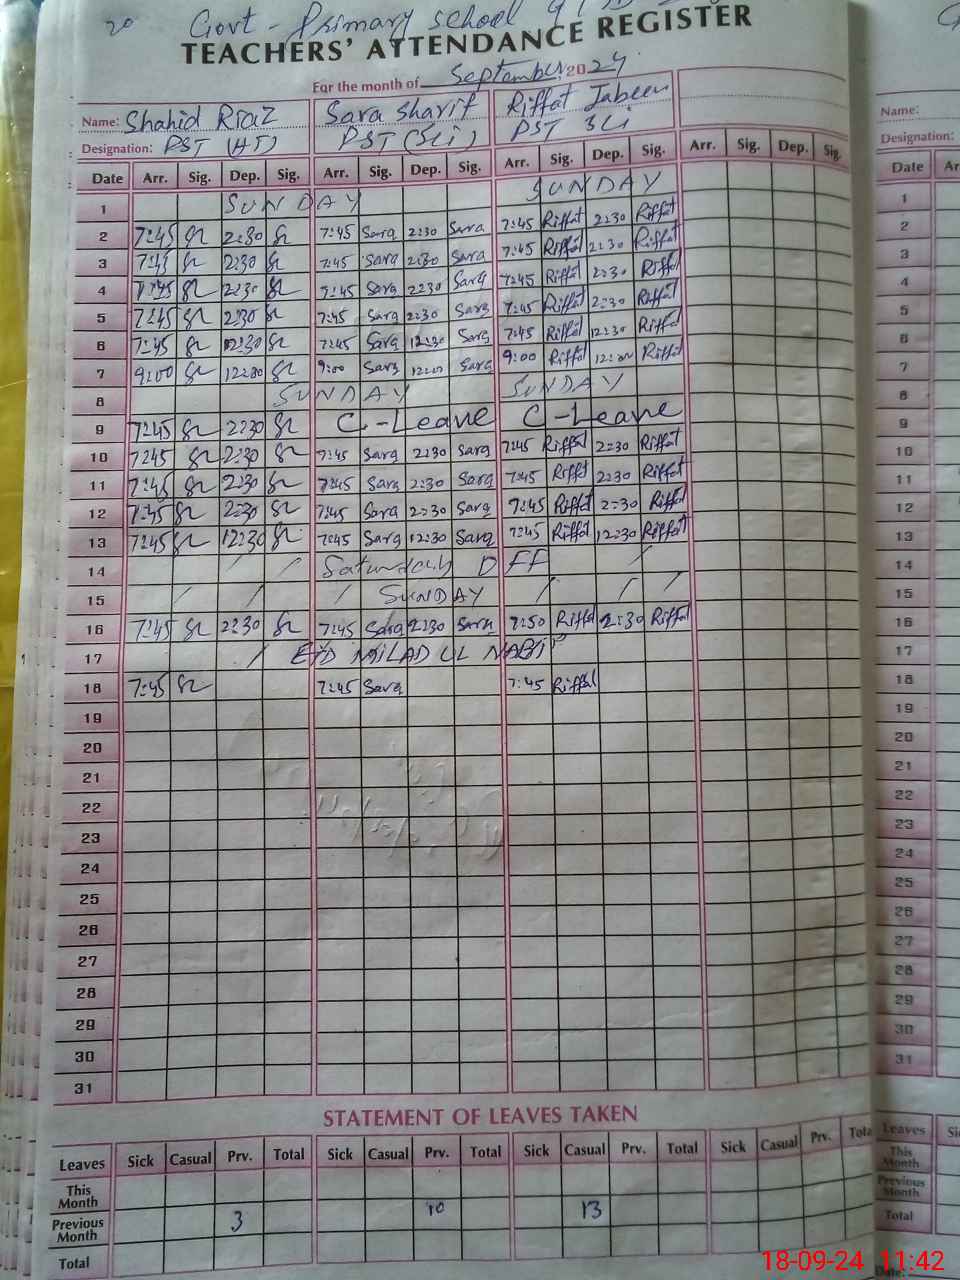 20 Govt - Primary school
TEACHERS' ATTENDANCE REGISTER
For the month of September 2024
Name: Shahid Riaz Sara Sharif Riffat Jabeen
Designation: PST (HT) PST (Sci) PST Sci
Date Arr. Sig. Dep. Sig. Arr. Sig. Dep. Sig. Arr. Sig. Dep. Sig. Arr. Sig. Dep. Sig.
1 SUNDAY SUNDAY
2 7:45 2:30 7:45 Sara 2:30 Sara 7:45 Riffat 2:30 Riffat
3 7:45 2:30 7:45 Sara 2:30 Sara 7:45 Riffat 2:30 Riffat
4 7:45 2:30 7:45 Sara 2:30 Sara 7:45 Riffat 2:30 Riffat
5 7:45 2:30 7:45 Sara 2:30 Sara 7:45 Riffat 2:30 Riffat
6 7:45 12:30 7:45 Sara 12:30 Sara 7:45 Riffat 12:30 Riffat
7 9:00 12:00 9:00 Sara 12:00 Sara 9:00 Riffat 12:00 Riffat
8 SUNDAY SUNDAY
9 7:45 2:30 C-Leave C-Leave
10 7:45 2:30 7:45 Sara 2:30 Sara 7:45 Riffat 2:30 Riffat
11 7:45 2:30 7:45 Sara 2:30 Sara 7:45 Riffat 2:30 Riffat
12 7:45 2:30 7:45 Sara 2:30 Sara 7:45 Riffat 2:30 Riffat
13 7:45 12:30 7:45 Sara 12:30 Sara 7:45 Riffat 12:30 Riffat
14 / / Saturday OFF /
15 / / / SUNDAY / / /
16 7:45 2:30 7:45 Sara 2:30 Sara 7:50 Riffat 2:30 Riffat
17 / EID MILAD UL NABI
18 7:45 7:45 Sara 7:45 Riffat
19
20
21
22
23
24
25
26
27
28
29
30
31
STATEMENT OF LEAVES TAKEN
Leaves Sick Casual Prv. Total Sick Casual Prv. Total Sick Casual Prv. Total Sick Casual Prv. Total
This Month
Previous Month 3 10 13
Total
Name:
Designation:
Date
1
2
3
4
5
6
7
8
9
10
11
12
13
14
15
16
17
18
19
20
21
22
23
24
25
26
27
28
29
30
31
Leaves
This Month
Previous Month
Total
Date:
18-09-24 11:42